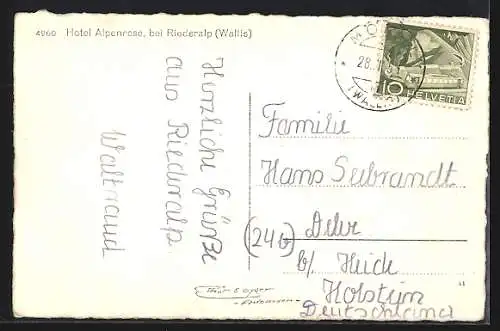 4960 Hotel Alpenrose, bei Riederalp (Wallis)
Herzliche Grüße
aus Riederalp
Waltraud
MÖ
28.
(WALLIS)
10
HELVETIA
Familie
Hans Seebrandt
(24b)
b/ Heide
Holstein
Deutschland